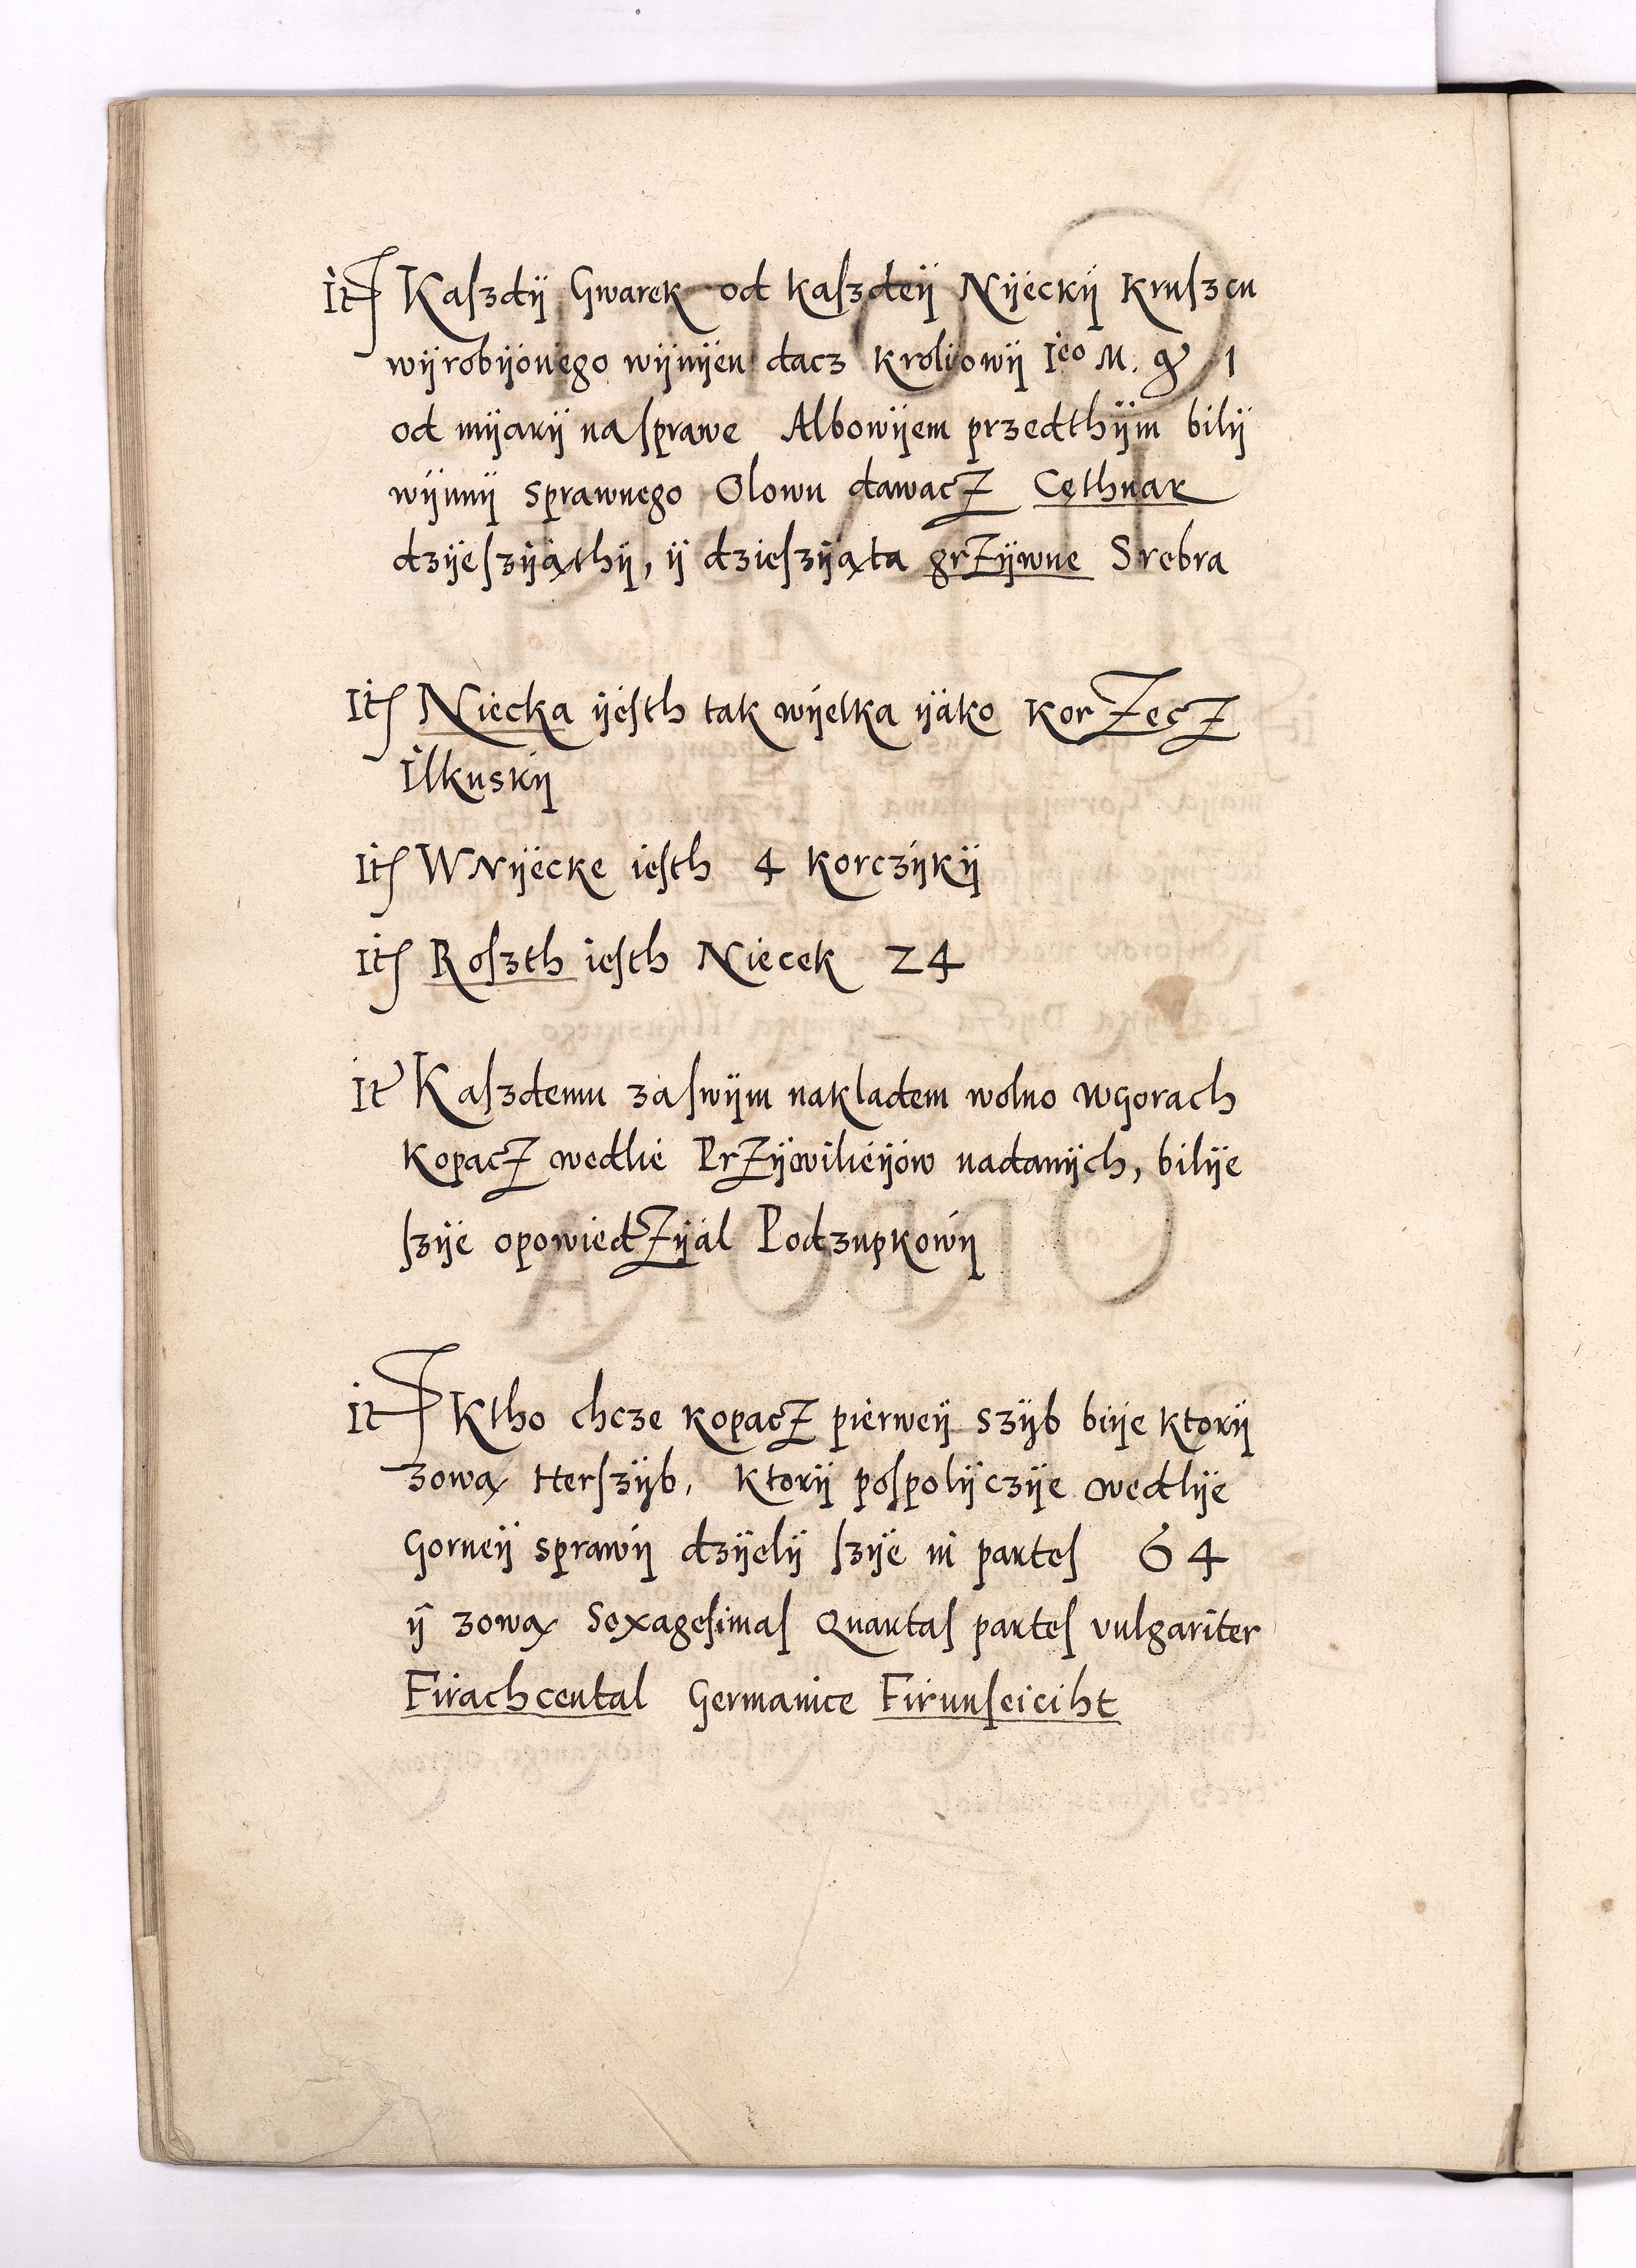 It Kaſzdÿ Gwarek od kaſzdeÿ Nÿeckÿ Kruſzcu
wÿrobÿonego wÿnÿen dacz Krolÿowÿ Ieo M. g 1
od mÿarÿ na ſprawe Albowÿem przedthÿm bilÿ
wÿnnÿ sprawnego Olowu dawacZ Cęthnar
dzÿeſzÿąthÿ, ÿ dzieſzÿąta grZÿwne Srebra
Itſ Niecka ÿeſth tak wÿelka ÿako KorZecZ
Ilkuskÿ
Itſ W Nÿecke ieſth 4 Korczÿkÿ
Itſ Roſzth ieſth Niecek 24
It Kaſzdemu zaſwÿm nakladem wolno wgorach
KopacZ wedlie PrZÿwilieÿow nadanÿch, bilÿe
ſzÿe opowiedZÿal Podzupkowÿ
It Ktho chcze kopacZ pierweÿ szÿb biÿe ktorÿ
zową Herſzÿb, Ktorÿ poſpolÿczÿe wedlÿe
Gorneÿ sprawÿ dzÿelÿ ſzÿe in parteſ 64
ÿ zową Sexageſimaſ Quartaſ parteſ vulgariter
Firachcental Germanice Firunſeiciht